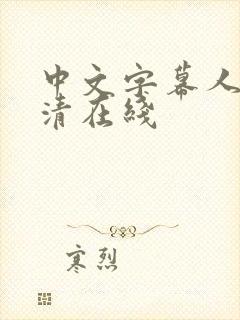 中文字幕人
清在线
寒烈